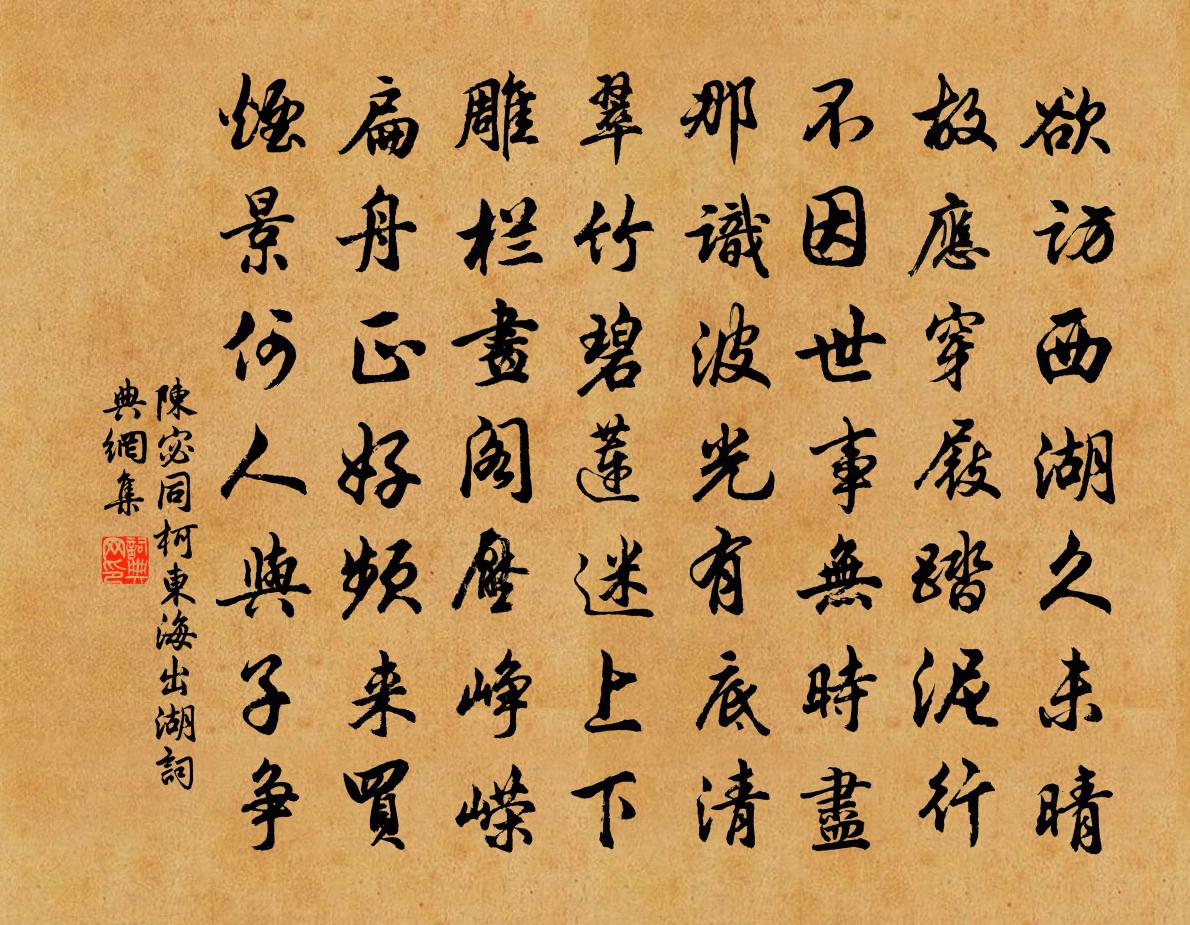 欲访西湖久未晴
故應穿屐踏泥行
不因世事無時盡
那識波光有底清
翠竹碧蓮迷上下
雕栏畫阁壓峥嵘
扁舟正好频来買
煙景何人與子争
陳宓同柯東海出湖詞
典網集
詞典网印